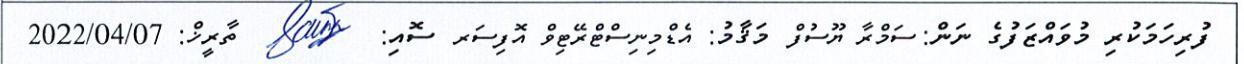 ފުރިހަމަކުރި މުވައްޒަފުގެ ނަން: ސަމްރާ ޔޫސުފް މަޤާމު: އެޑްމިނިސްޓްރޭޓިވް އޮފިސަރ ސޮއި: ތާރީޚް: 2022/04/07